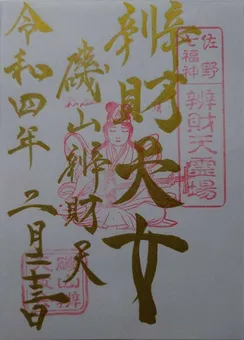 佐野
七福神
辨財天霊場
辨財天女
磯山辨財天
令和四年
二月二十三日